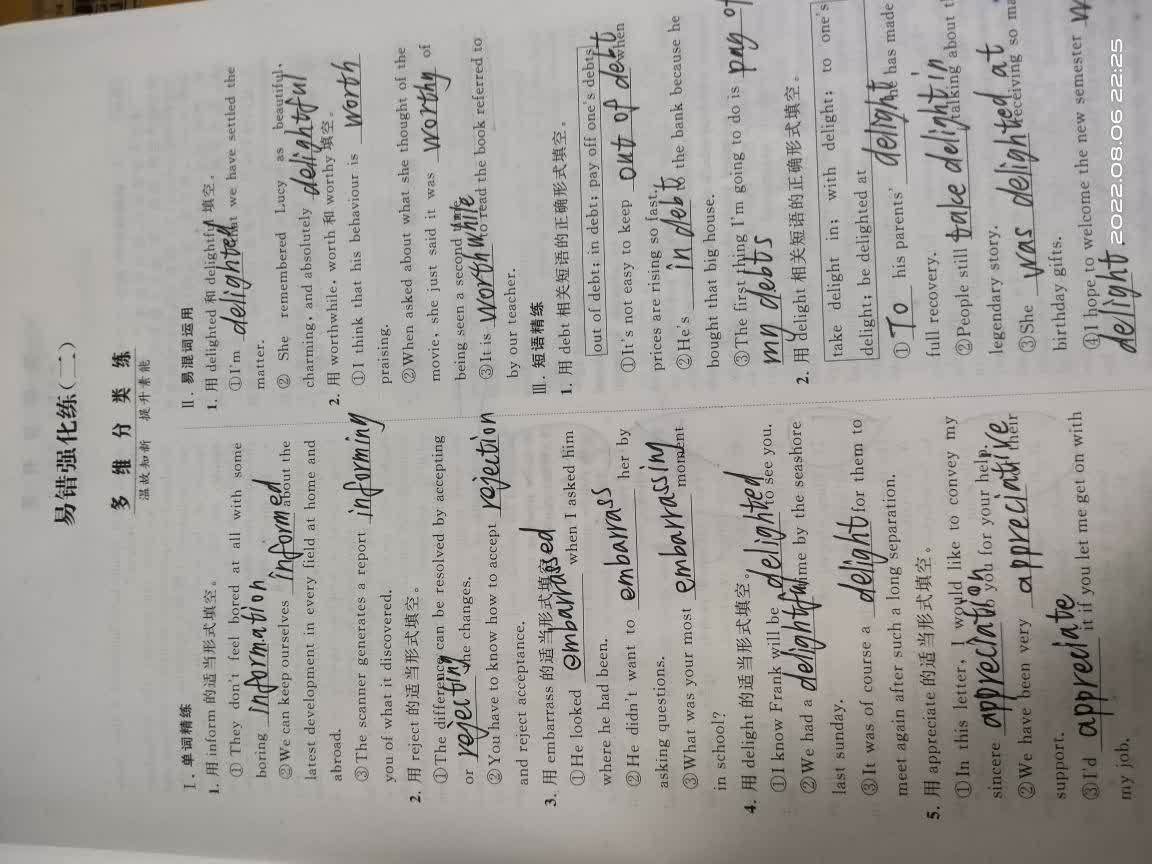 易错强化练(二)
多 维 分 类 练
温故知新 提升素能
Ⅰ. 单词精练
1. 用 inform 的适当形式填空。
①They don't feel bored at all with some
boring information
②We can keep ourselves informed about the
latest development in every field at home and
abroad.
③The scanner generates a report informing
you of what it discovered.
2. 用 reject 的适当形式填空。
①The difference can be resolved by accepting
or rejecting the changes.
②You have to know how to accept rejection
and reject acceptance.
3. 用 embarrass 的适当形式填空。
①He looked embarrassed when I asked him
where he had been.
②He didn't want to embarrass her by
asking questions.
③What was your most embarrassing moment
in school?
4. 用 delight 的适当形式填空。
①I know Frank will be delighted to see you.
②We had a delightful time by the seashore
last sunday.
③It was of course a delight for them to
meet again after such a long separation.
5. 用 appreciate 的适当形式填空。
①In this letter, I would like to convey my
sincere appreciation you for your help.
②We have been very appreciative their
support.
③I'd appreciate it if you let me get on with
my job.
Ⅱ. 易混词运用
1. 用 delighted 和 delightful 填空。
①I'm delighted that we have settled the
matter.
② She remembered Lucy as beautiful,
charming, and absolutely delightful
2. 用 worthwhile, worth 和 worthy 填空。
①I think that his behaviour is worth
praising.
②When asked about what she thought of the
movie, she just said it was worthy of
being seen a second time.
③It is worthwhile to read the book referred to
by our teacher.
Ⅲ. 短语精练
1. 用 debt 相关短语的正确形式填空。
out of debt; in debt; pay off one's debts
①It's not easy to keep out of debt when
prices are rising so fast.
②He's in debt to the bank because he
bought that big house.
③The first thing I'm going to do is pay of
my debts
2. 用 delight 相关短语的正确形式填空。
take delight in; with delight; to one's
delight; be delighted at
①To his parents' delight he has made
full recovery.
②People still take delight in talking about
legendary story.
③She was delighted at receiving so
birthday gifts.
④I hope to welcome the new semester
delight
2022.08.06 22:25